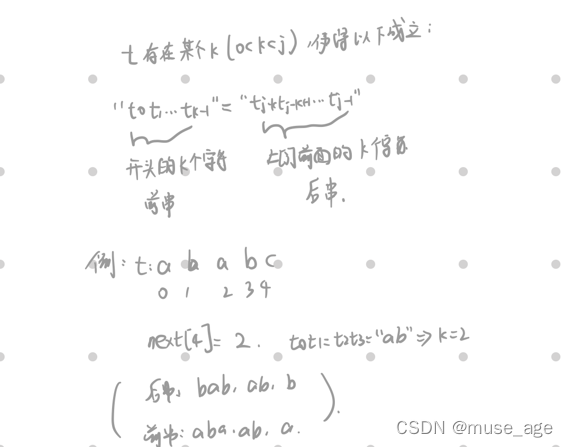 t存在某个k(0<k<j),使得以下成立:
"t0t1…tk-1"="tj-ktj-k+1…tj-1"
开头的k个字符 tj的前面的k个字符
前串 后串.
例:t:a b a b c
0 1 2 3 4
next[4]=2. t0t1=t2t3="ab"⇒k=2
( 后串: bab, ab, b
前串: aba, ab, a. ).
CSDN @muse_age